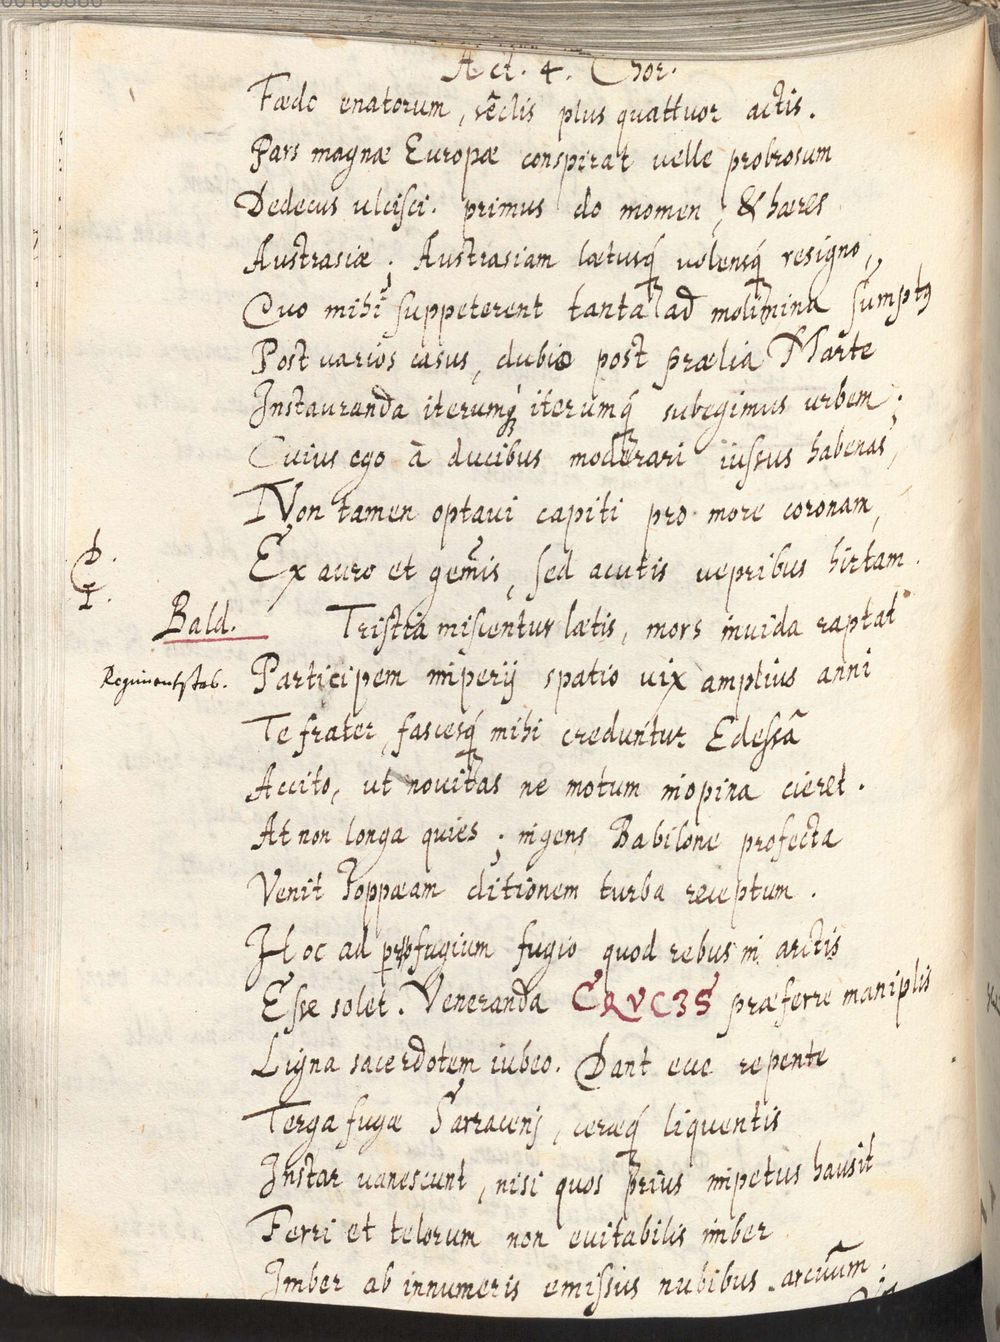 Act. 4. Chor.
Fædo enatorum, sēclis plus quattuor actis.
Pars magnæ Europæ conspirat velle probrosum
Dedecus ulcisci. primus do momen, & hæres
Austrasiæ; Austrasiam lætusq́ volensq́ resigno,
Quo mihi suppeterent tanta ad molimina sumptꝰ
Post varios casus, dubio post prælia Marte
Instauranda iterumq́ iterumq́ subegimus urbem;
Cuius ego à ducibus moderari iussus habenas,
Non tamen optavi capiti pro more coronam,
Ex auro et gem̄is, sed acutis vepribus hirtam.
Bald. Tristia miscentur lætis, mors invida raptat
Participem imperij spatio vix amplius anni
Te frater, fascesq́ mihi creduntur Edessā
Accito, ut novitas ne motum inopina cieret.
At non longa quies; ingens Babilone profecta
Venit Joppæam ditionem turba receptum.
Hoc ad profugium fugio quod rebus in arctis
Esse solet. Veneranda CRVCIS præferre maniplis
Ligna sacerdotem iubeo. Dant ecce repente
Terga fugæ Sarraceni, ceræq́ liquentis
Instar vanescunt, nisi quos prius impetus hausit
Ferri et telorum non evitabilis imber
Imber ab innumeris emissus nubibus arcuum;